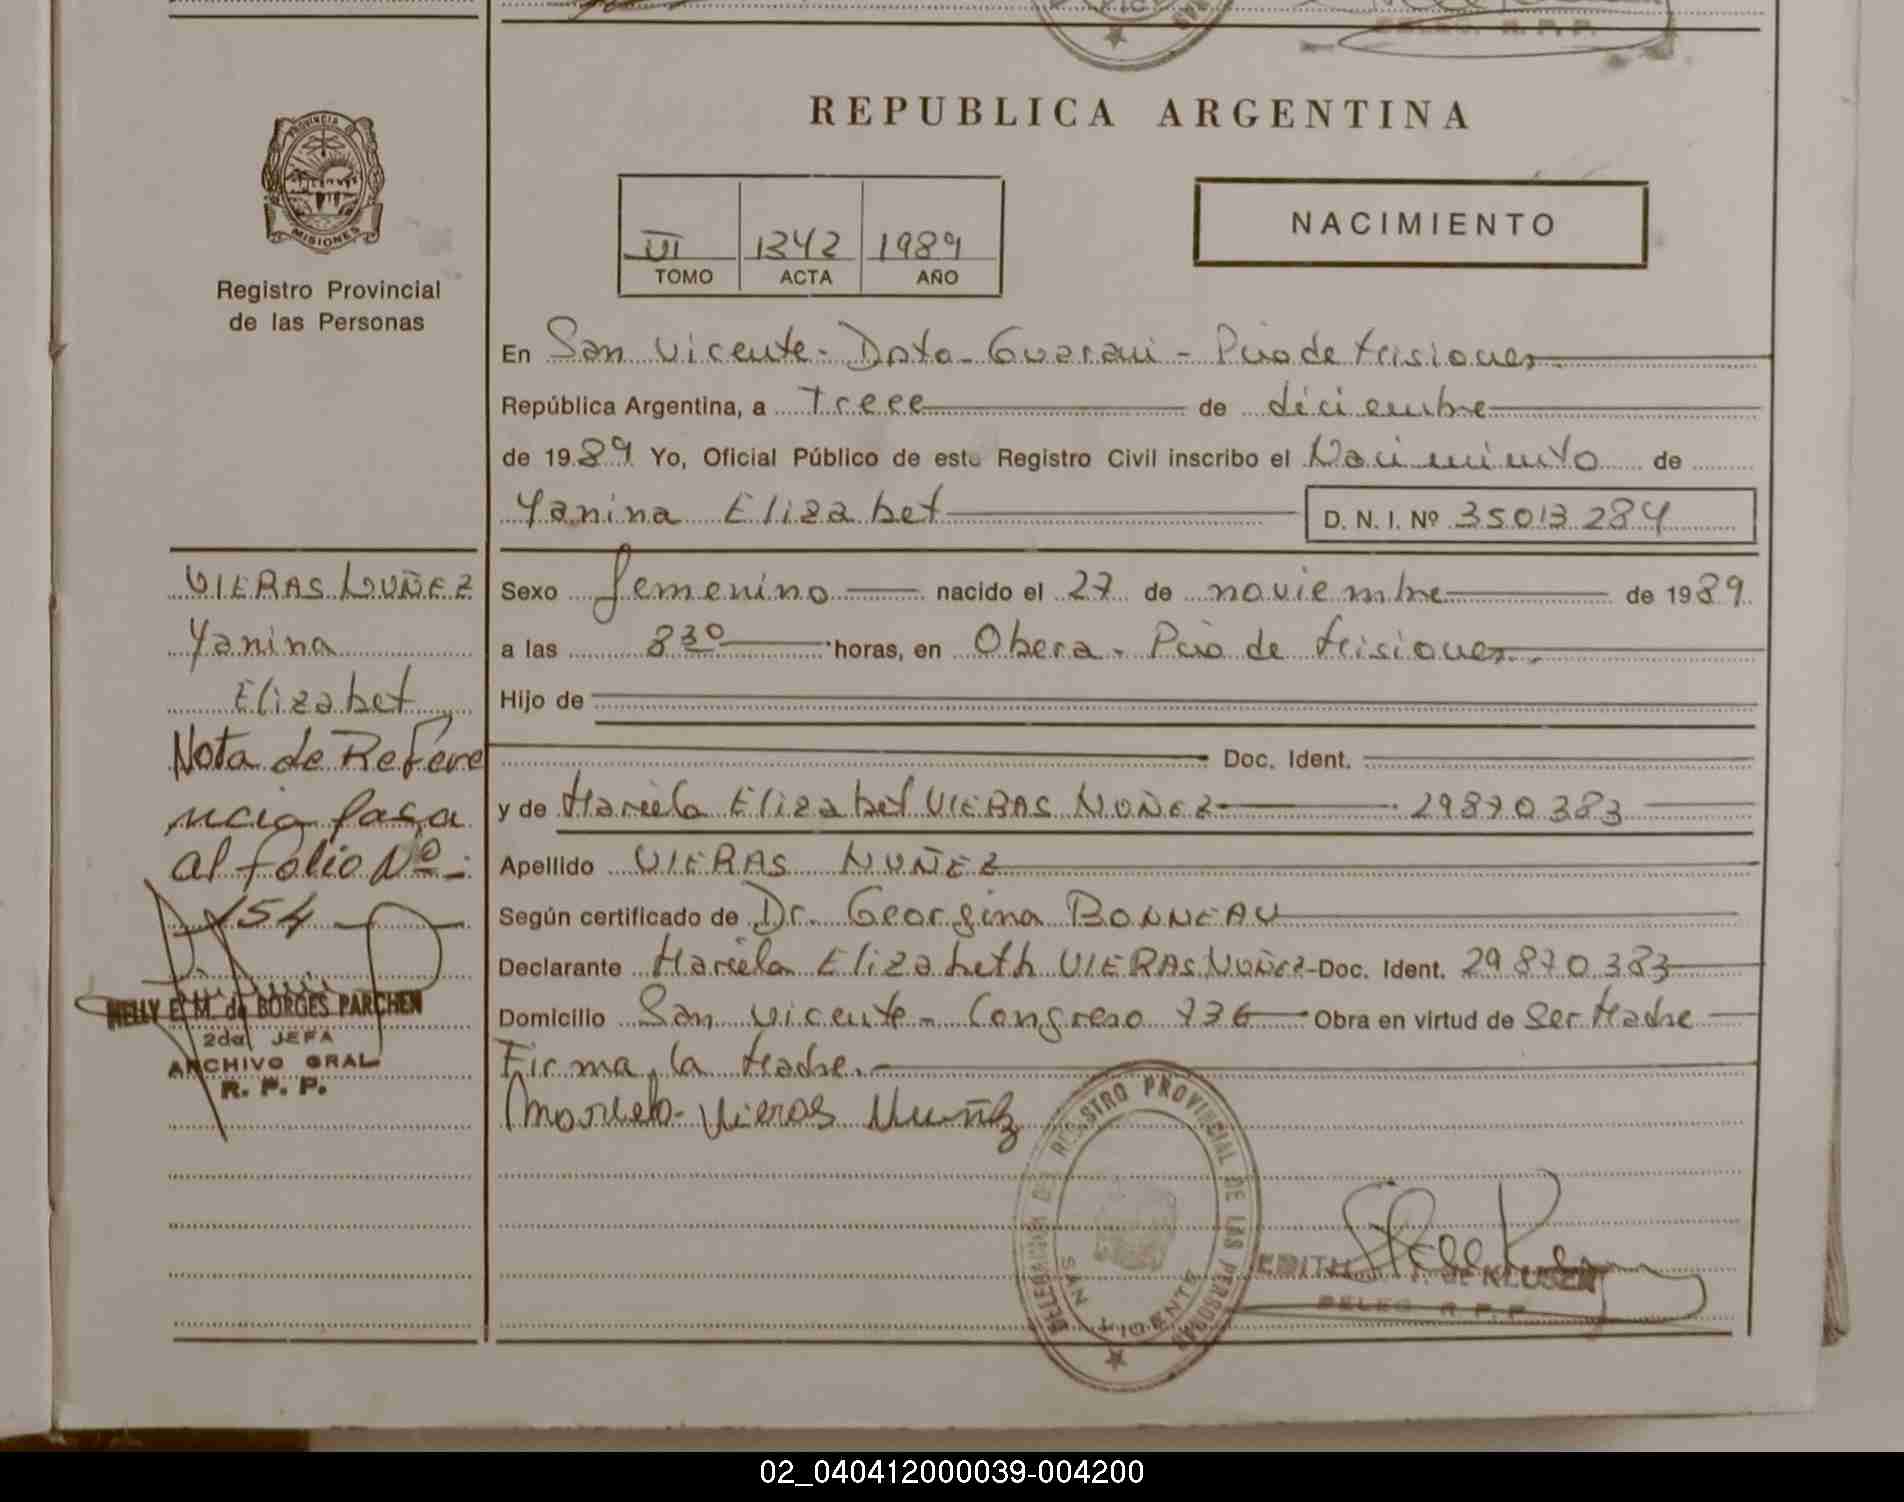 REPUBLICA ARGENTINA
PROVINCIA DE
MISIONES
Registro Provincial
de las Personas
VI 1342 1989
TOMO ACTA AÑO
NACIMIENTO
En San Vicente - Dpto - Guarani - Pcia de Misiones
República Argentina, a Trece de diciembre
de 1989 Yo, Oficial Público de este Registro Civil inscribo el Nacimiento de
Yanina Elizabet D. N. I. Nº 35013284
VIERAS NUÑEZ
Yanina
Elizabet
Nota de Refere
ncia pasa
al folio Nº -
154
NELLY E. M. de BORGES PARCHEN
2da. JEFA
ARCHIVO GRAL
R. P. P.
Sexo femenino nacido el 27 de noviembre de 1989
a las 830 horas, en Obera - Pcia de Misiones -
Hijo de
Doc. Ident.
y de Mariela Elizabet VIERAS NUÑEZ - 29870383
Apellido VIERAS NUÑEZ
Según certificado de Dr. Georgina BONNEAU
Declarante Mariela Elizabeth VIERAS NUÑEZ - Doc. Ident. 29870383
Domicilio San Vicente - Congreso 736 Obra en virtud de Ser Madre
Firma la Madre. -
Mariela Vieras Nuñez
DELEGACION DEL REGISTRO PROVINCIAL DE LAS PERSONAS
SAN VICENTE
EDITH de KLUSEN
DELEG. R.P.P.
02_040412000039-004200